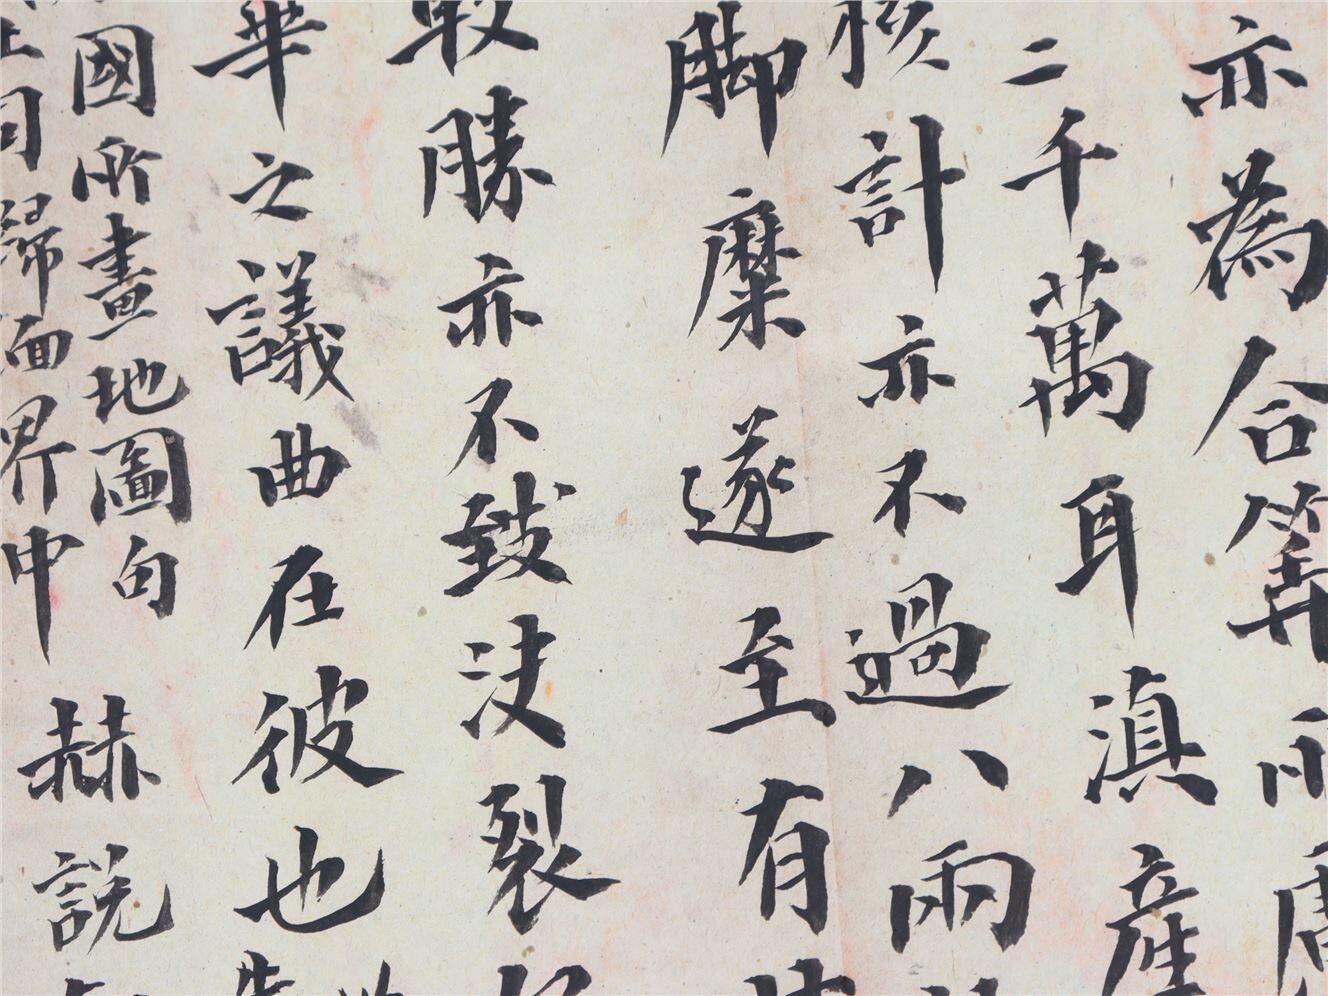 亦為合算
二千萬身滇產
核計亦不過八兩
腳糜遂至有
取勝亦不致決裂
華之議曲在彼也
國所畫地圖句
歸面界中
赫說